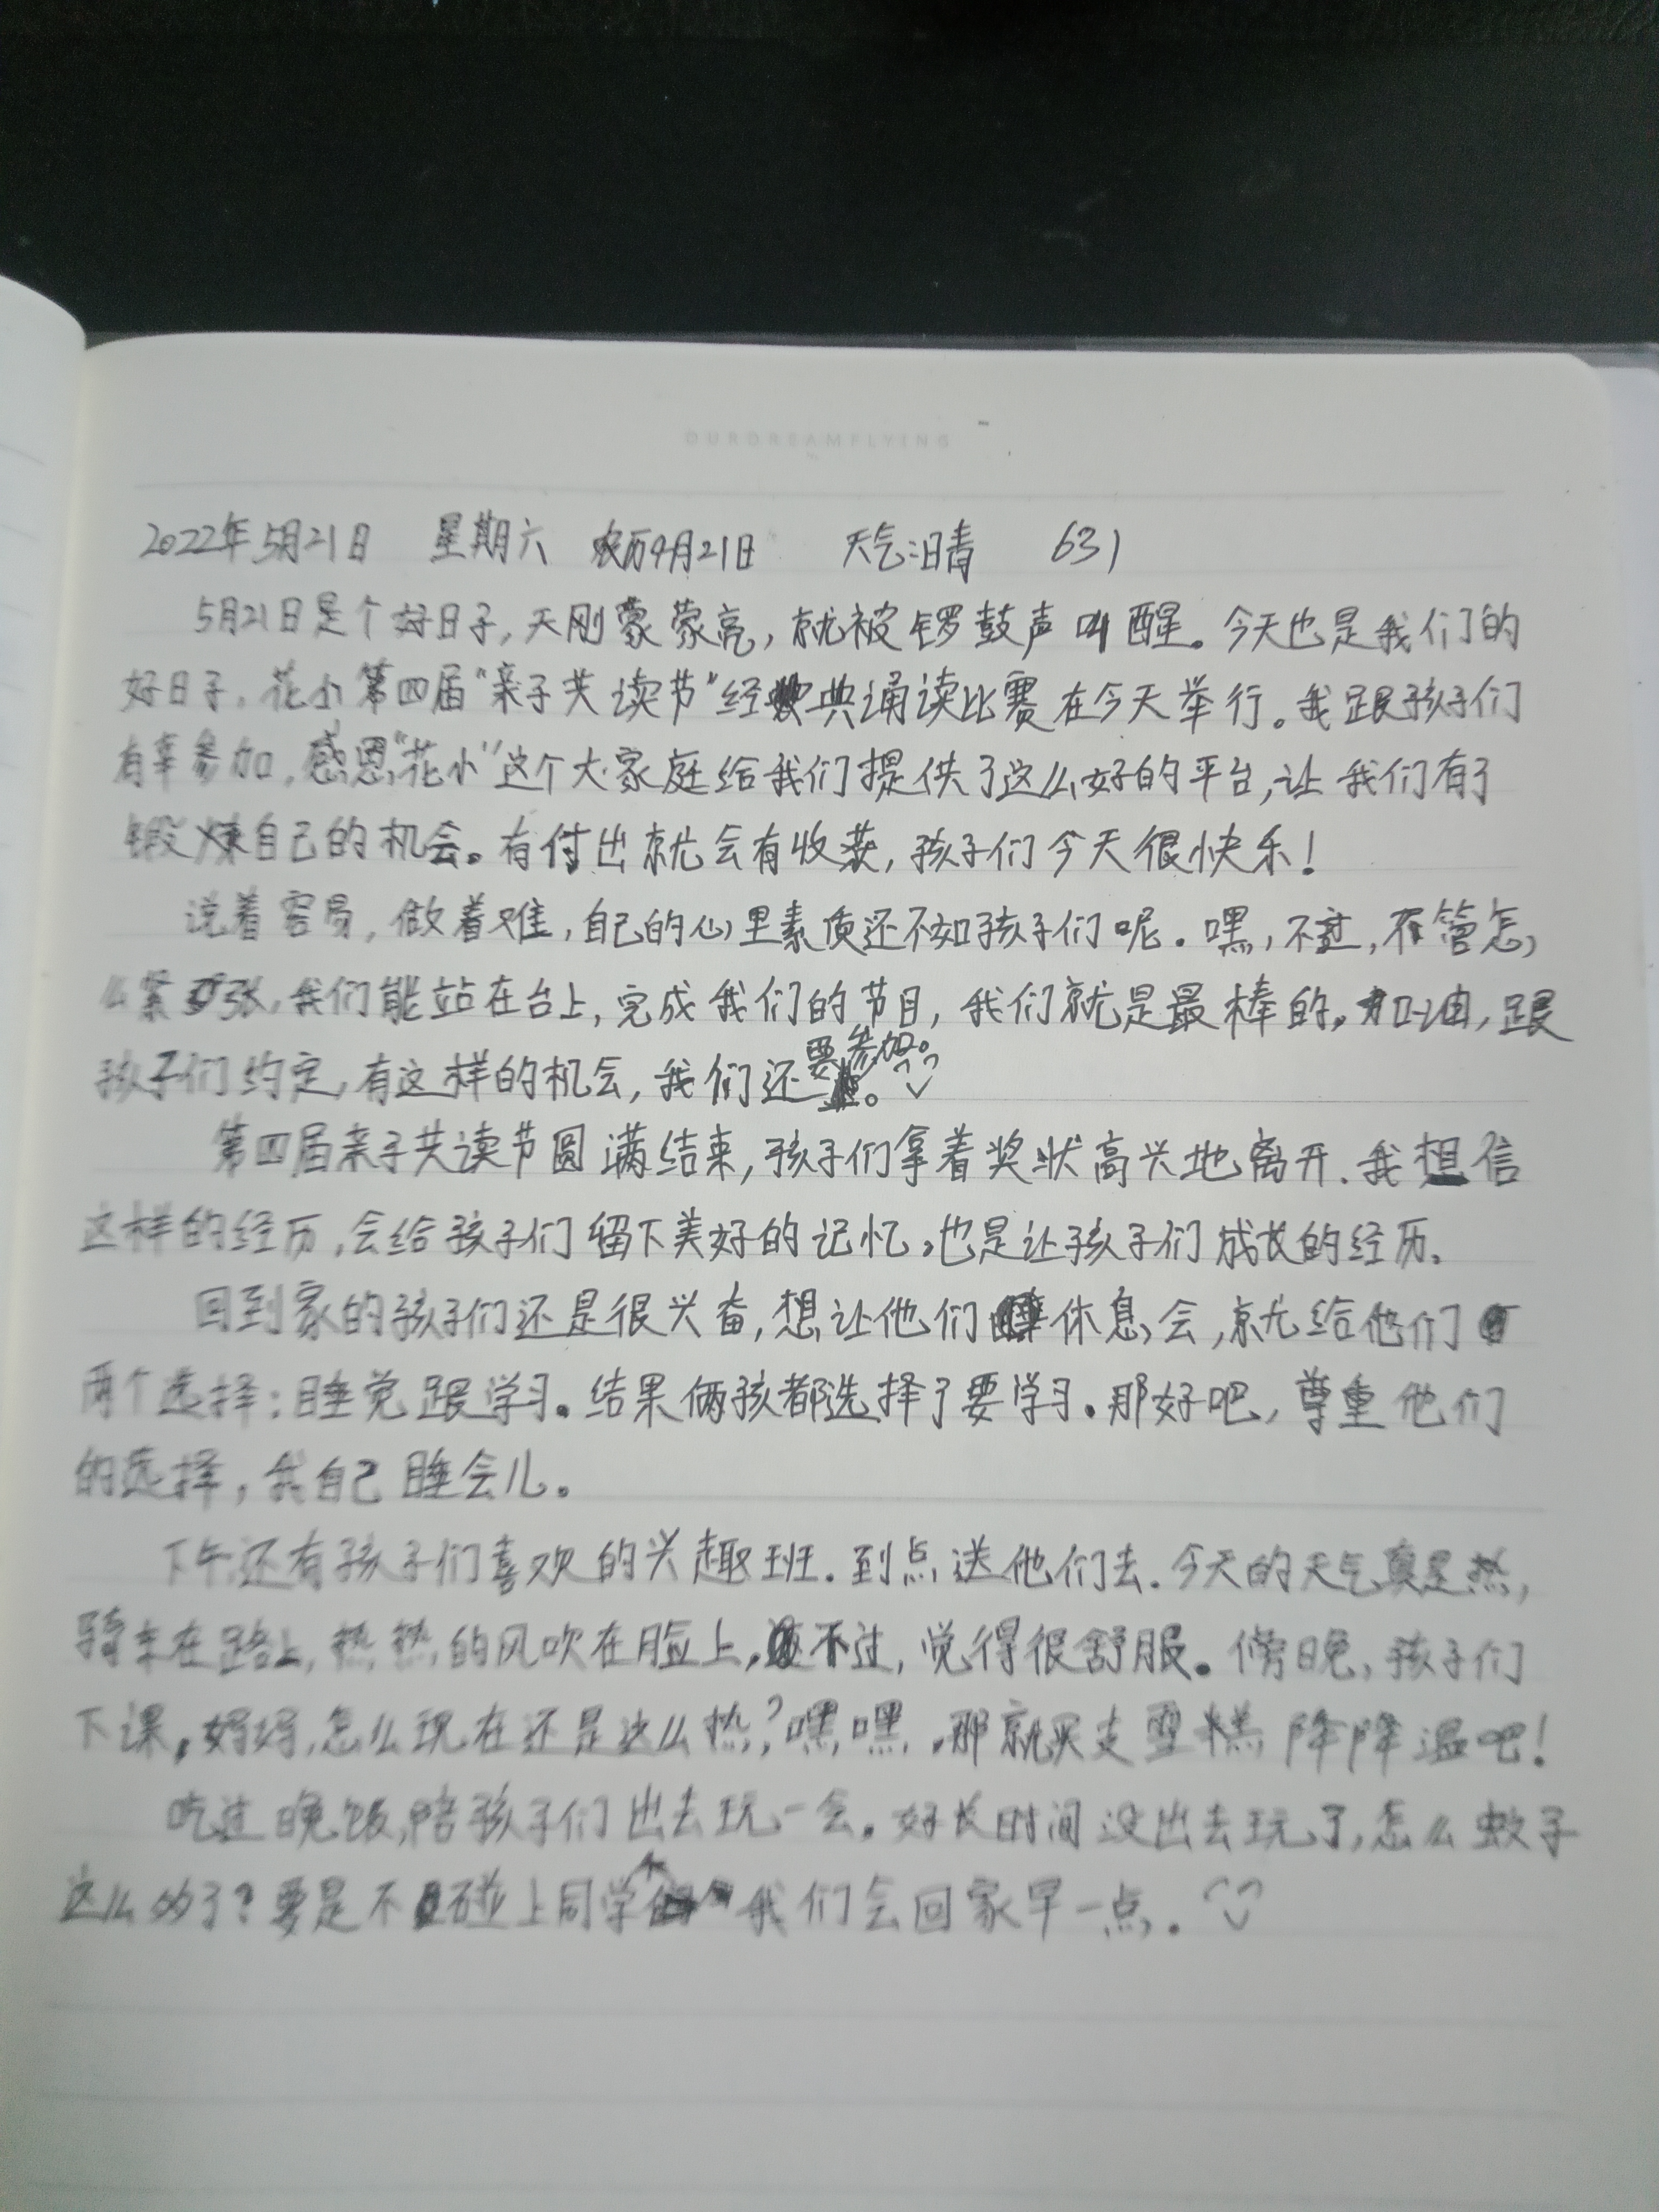 OURDREAMFLYING
2022年5月21日 星期六 农历4月21日 天气:晴 631
5月21日是个好日子,天刚蒙蒙亮,就被锣鼓声叫醒。今天也是我们的
好日子。花小第四届“亲子共读节”经典诵读比赛在今天举行。我跟孩子们
有幸参加,感恩“花小”这个大家庭给我们提供了这么好的平台,让我们有了
锻炼自己的机会。有付出就会有收获,孩子们今天很快乐!
说着容易,做着难,自己的心里素质还不如孩子们呢。嘿,不过,不管怎
么紧张,我们能站在台上,完成我们的节目,我们就是最棒的。加油,跟
孩子们约定,有这样的机会,我们还要参加。
第四届亲子共读节圆满结束,孩子们拿着奖状高兴地离开.我想信
这样的经历,会给孩子们留下美好的记忆。也是让孩子们成长的经历。
回到家的孩子们还是很兴奋,想让他们休息会,就给他们
两个选择:睡觉跟学习。结果俩孩都选择了要学习。那好吧,尊重他们
的选择,我自己睡会儿。
下午还有孩子们喜欢的兴趣班.到点送他们去.今天的天气真是热,
骑车在路上,热热的风吹在脸上,不过,觉得很舒服。傍晚,孩子们
下课,妈妈,怎么现在还是这么热?嘿嘿,那就买支雪糕降降温吧!
吃过晚饭,陪孩子们出去玩一会。好长时间没出去玩了,怎么蚊子
这么多了?要是不碰上同学我们会回家早一点.